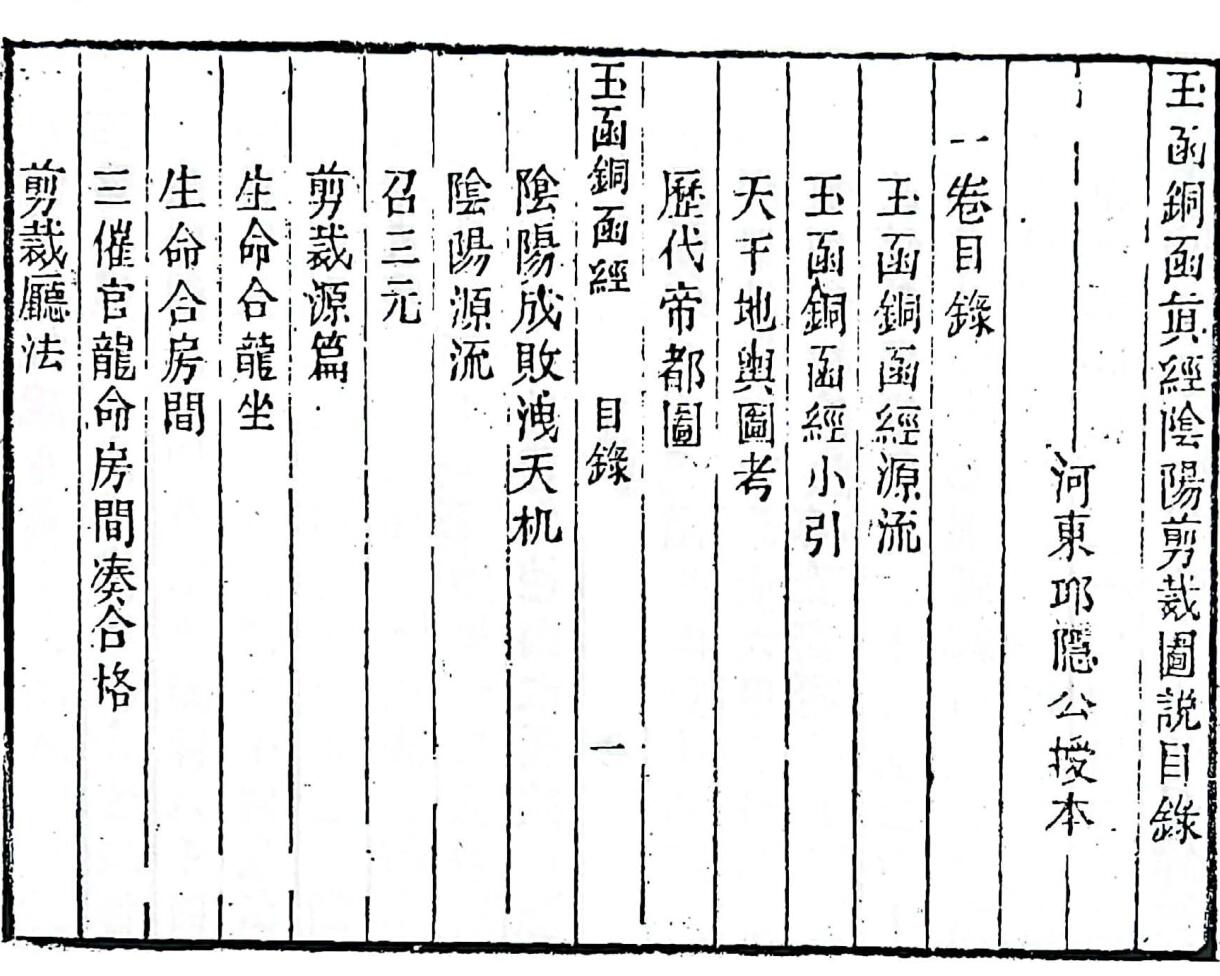 玉函銅函眞經陰陽剪裁圖說目錄
河東邱隱公授本
一卷目錄
玉函銅函經源流
玉函銅函經小引
天干地輿圖考
歷代帝都圖
玉函銅函經 目錄 一
陰陽成敗洩天机
陰陽源流
召三元
剪裁源篇
生命合龍坐
生命合房間
三催官龍命房間凑合格
剪裁廳法